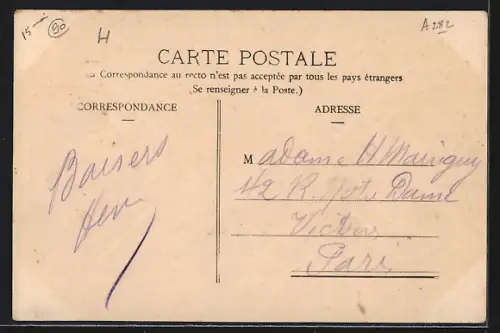 15 mai
90
H
A282
CARTE POSTALE
La Correspondance au recto n'est pas acceptée par tous les pays étrangers
(Se renseigner à la Poste.)
CORRESPONDANCE
ADRESSE
Baisers
Madame H
42 R. Not. Dame
Victoires
Paris